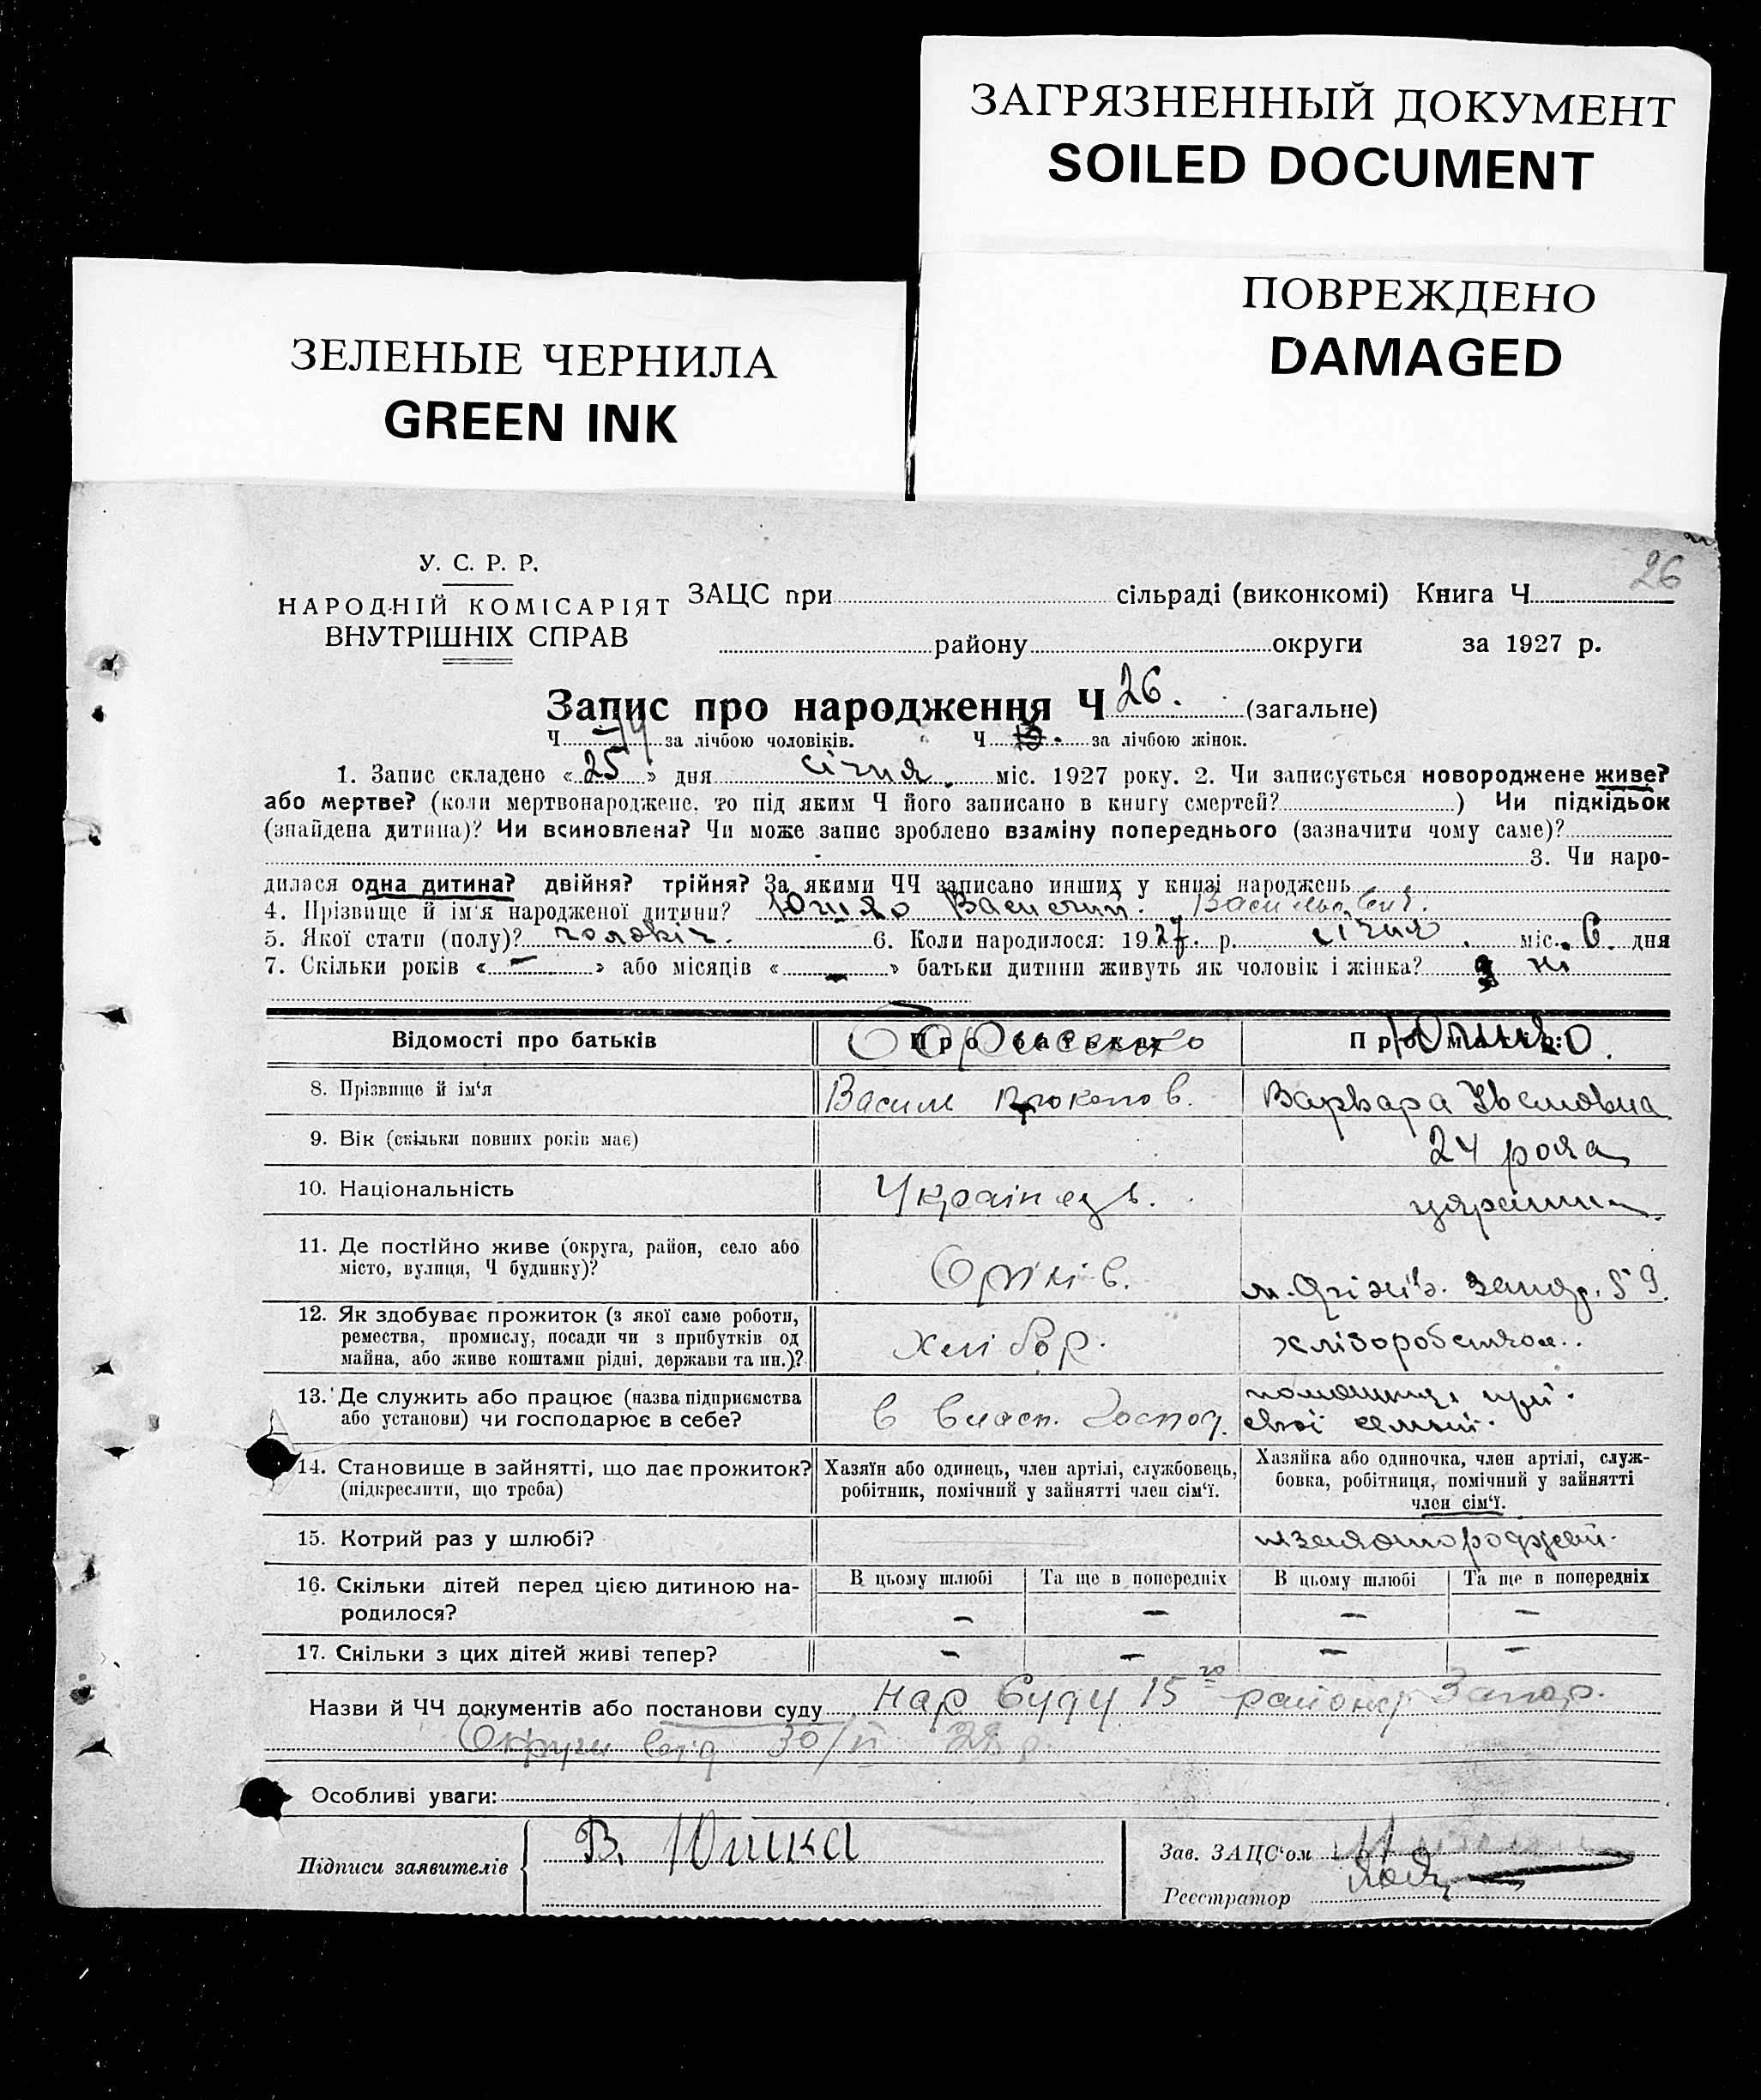 ЗАГРЯЗНЕННЫЙ ДОКУМЕНТ
SOILED DOCUMENT
ПОВРЕЖДЕНО
DAMAGED
ЗЕЛЕНЫЕ ЧЕРНИЛА
GREEN INK
26
У. С. Р. Р.
НАРОДНІЙ КОМІСАРІЯТ
ВНУТРІШНІХ СПРАВ
ЗАЦС при сільраді (виконкомі) Книга Ч
району округи за 1927 р.
Запис про народження Ч 26. (загальне)
Ч 14 за лічбою чоловіків. Ч за лічбою жінок.
1. Запис складено « 25 » дня січня міс. 1927 року. 2. Чи записується новороджене живе?
або мертве? (коли мертвонароджене, то під яким Ч його записано в книгу смертей? ) Чи підкідьок
(знайдена дитина)? Чи всиновлена? Чи може запис зроблено взаміну попереднього (зазначити чому саме)?
3. Чи наро-
дилася одна дитина? двійня? трійня? За якими ЧЧ записано инших у книзі народжень
4. Прізвище й ім'я народженої дитини? Юшко Василий.
5. Якої стати (полу)? чоловіч. 6. Коли народилося: 1927. р. січня міс. 6. дня
7. Скільки років « – » або місяців « – » батьки дитини живуть як чоловік і жінка? ні
Відомості про батьків Про батька: Про матір:
Борисенко Юшко.
8. Прізвище й ім'я Василь Прокопов. Варвара Ивановна
9. Вік (скільки повних років має) 24 рока
10. Національність Українець. україн.
11. Де постійно живе (округа, район, село або
місто, вулиця, Ч будинку)? Оріхів. м. Оріхів. 59.
12. Як здобуває прожиток (з якої саме роботи,
ремества, промислу, посади чи з прибутків од
майна, або живе коштами рідні, держави та ин.)? хлібор. хліборобством.
13. Де служить або працює (назва підприємства
або установи) чи господарює в себе? в власн. господ. при
своі семьи.
14. Становище в зайнятті, що дає прожиток?
(підкреслити, що треба)
Хазяїн або одинець, член артілі, службовець,
робітник, помічний у зайнятті член сім'ї.
Хазяйка або одиночка, член артілі, служ-
бовка, робітниця, помічний у зайнятті
член сім'ї.
15. Котрий раз у шлюбі?
16. Скільки дітей перед цією дитиною на-
родилося?
В цьому шлюбі Та ще в попередніх В цьому шлюбі Та ще в попередніх
– – – –
17. Скільки з цих дітей живі тепер? – – – –
Назви й ЧЧ документів або постанови суду Нар Суду 15го району Запор.
Округи від 30/VI 28 р.
Особливі уваги:
Підписи заявителів В. Юшка
Зав. ЗАЦС'ом
Реєстратор